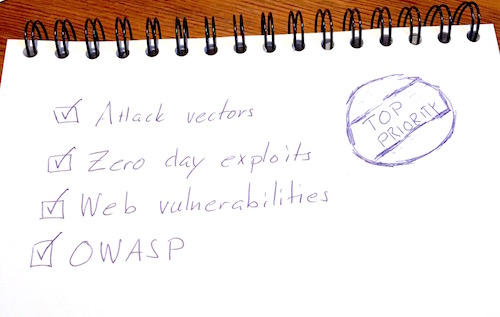 Attack vectors
Zero day exploits
Web vulnerabilities
OWASP
TOP
PRIORITY